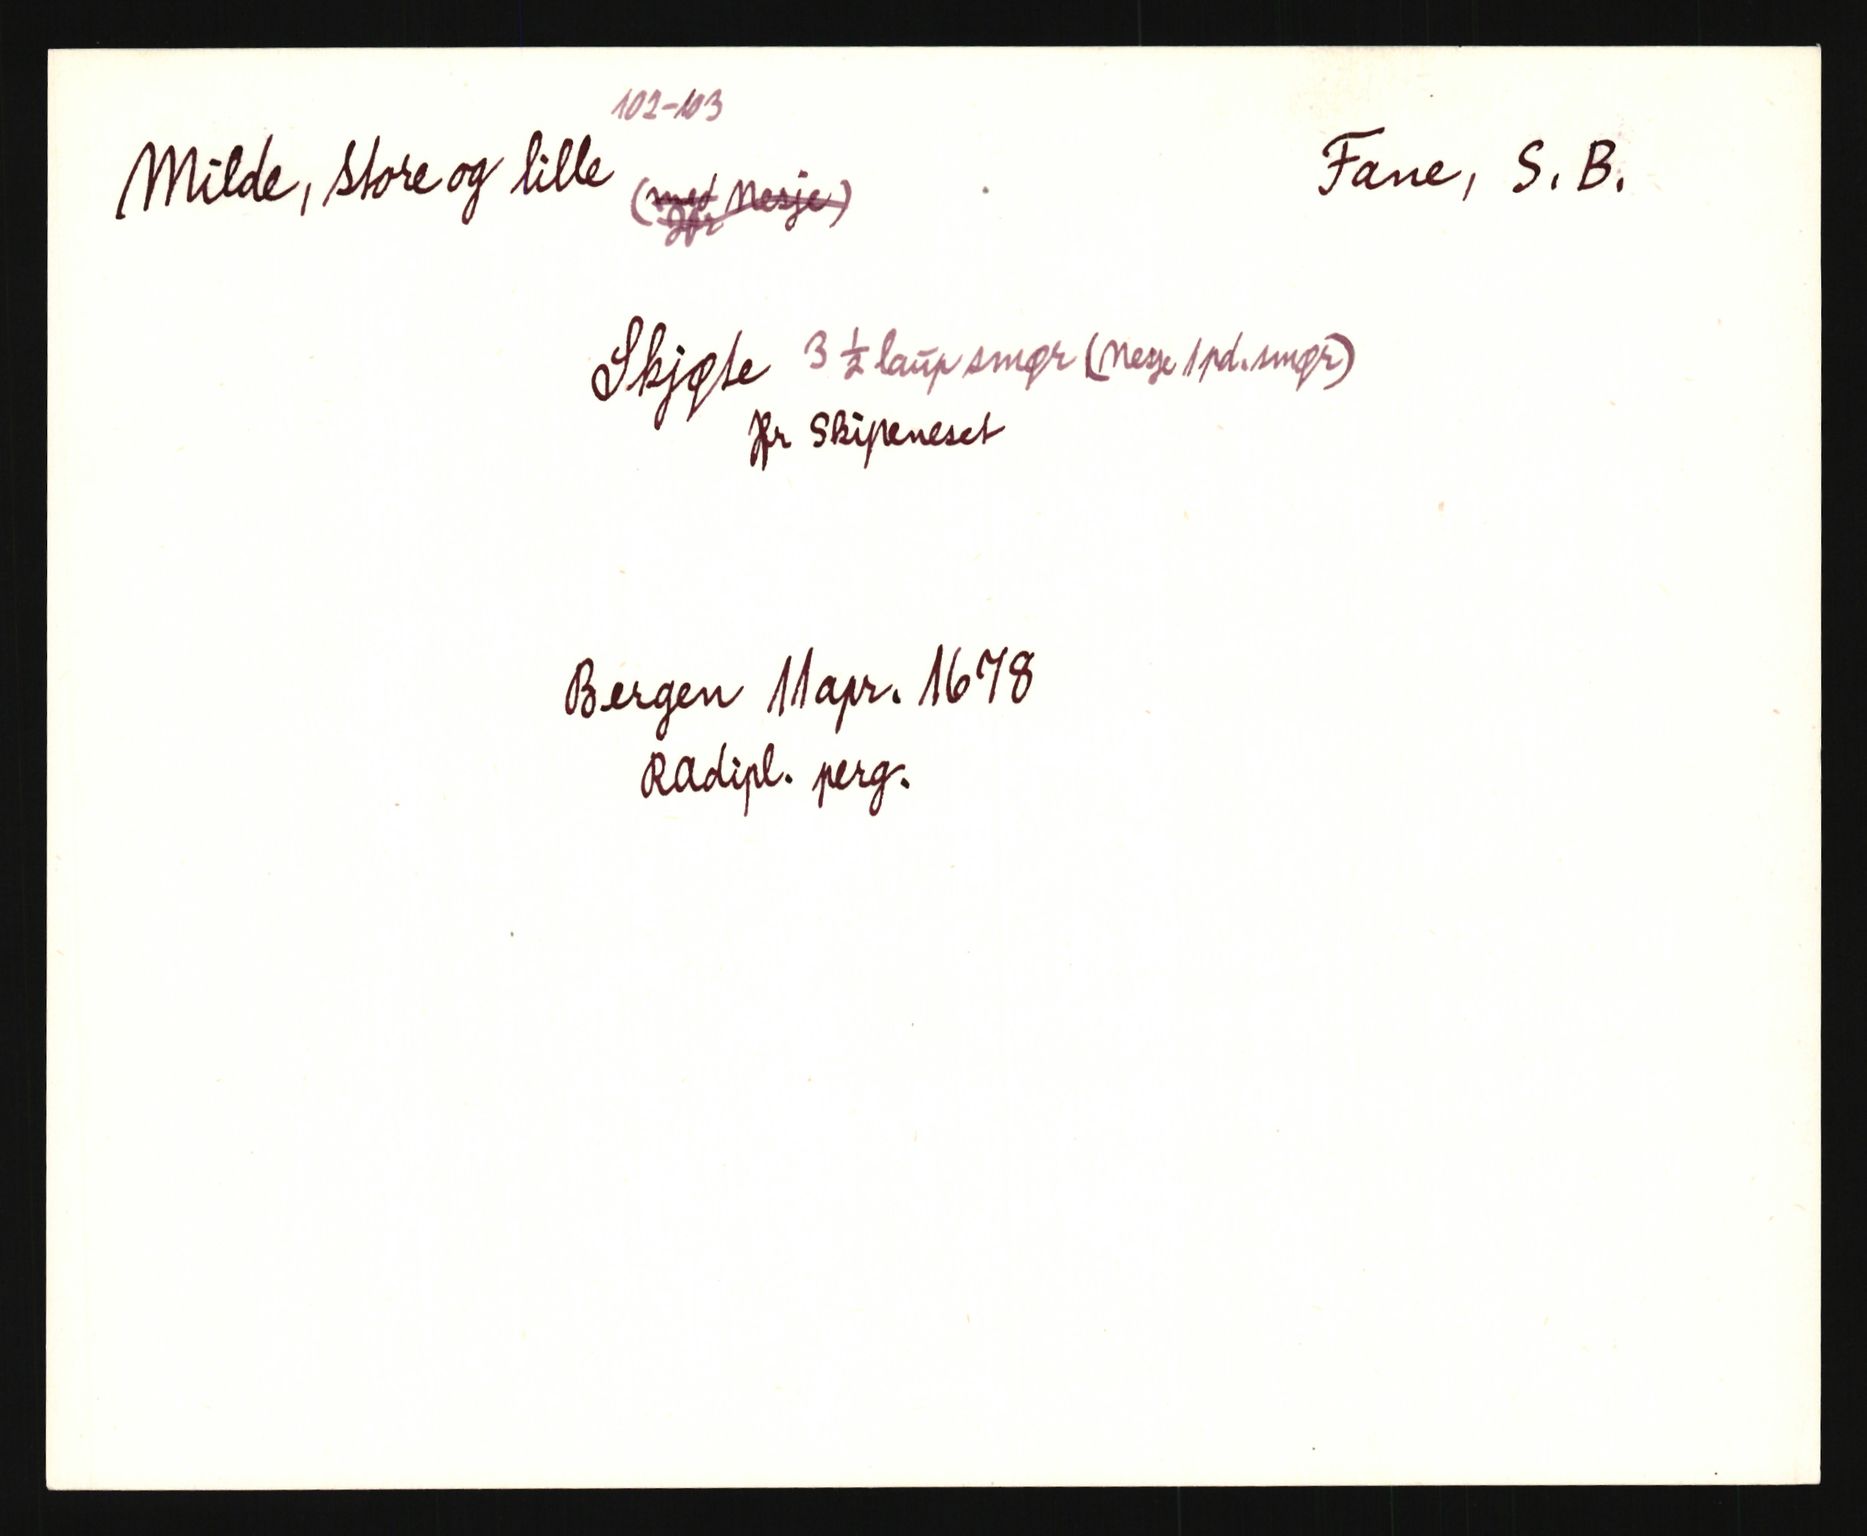 102-103
Milde, store og lille (med Nesje) Fane, S. B.
Jfr
Skjøte 3 1/2 laup smør (Nesje 1 pd. smør)
Jfr Skipeneset
Bergen 11 apr. 1678
RAdipl. perg.